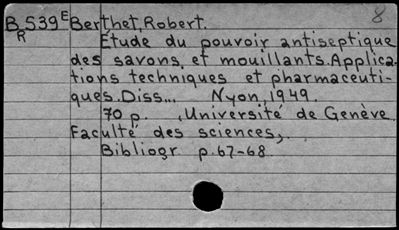 8
B 539 E Berthet, Robert.
R
Étude du pouvoir antiseptique
des savons et mouillants. Applica-
tions techniques et pharmaceuti-
ques. Diss... Nyon, 1949.
70 p. , Université de Genève.
Faculté des sciences,.
Bibliogr p. 67-68